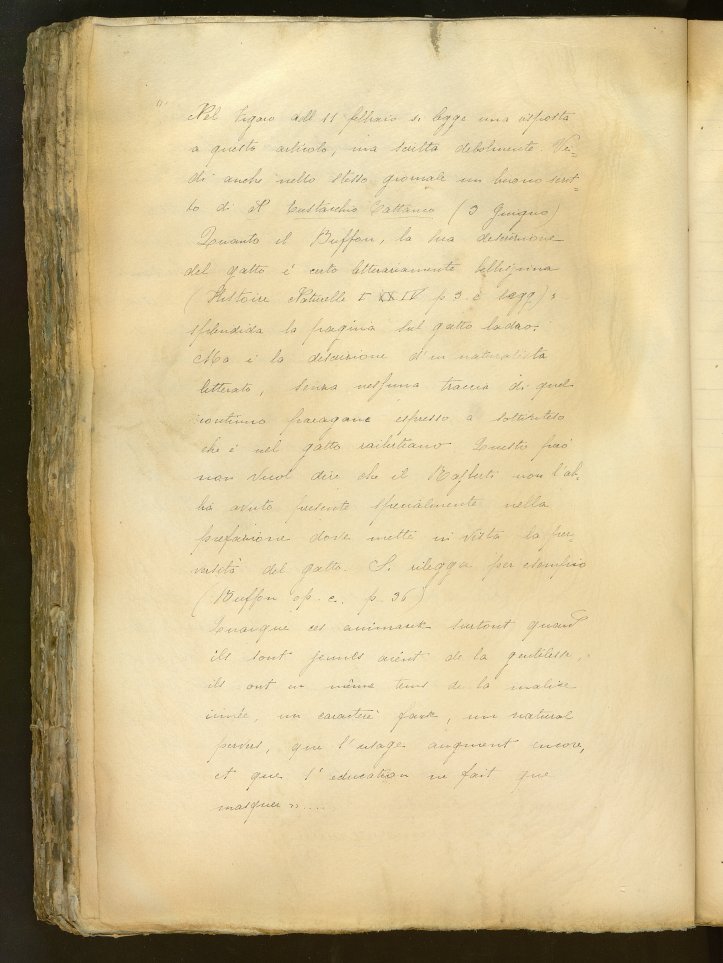 Nel Figaro dell 11 febbraio si legge una risposta
a questo articolo, ma scritta debolmente. Ve-
di anche nello stesso giornale un buono scrit-
to di Eustacchio Cattaneo (3 Giugno)
Quanto il Buffon, la sua descrizione
del gatto é certo letterariamente bellissima
(Histoire Naturelle T XXIV p 3. e segg);
splendida la pagina sul gatto ladro.
Ma é la descrizione d'un naturalista
letterato, senza nessuna traccia di quel
continuo paragone espresso o sottinteso
che é nel gatto rajbertiano. Questo però
non vuol dire che il Rajberti non l'ab-
bia avuto presente specialmente nella
prefazione dove mette in vista la per-
versità del gatto. Si rilegga per esempio
(Buffon op. c. p. 36)
Quoique ces animaux surtout quand
ils sont jeunes aient de la gentilesse,
ils ont en même tems de la malice
innée, un caractère faux, un natural
pervers, que l'usage augment encore,
et que l'education ne fait que
masquer »....